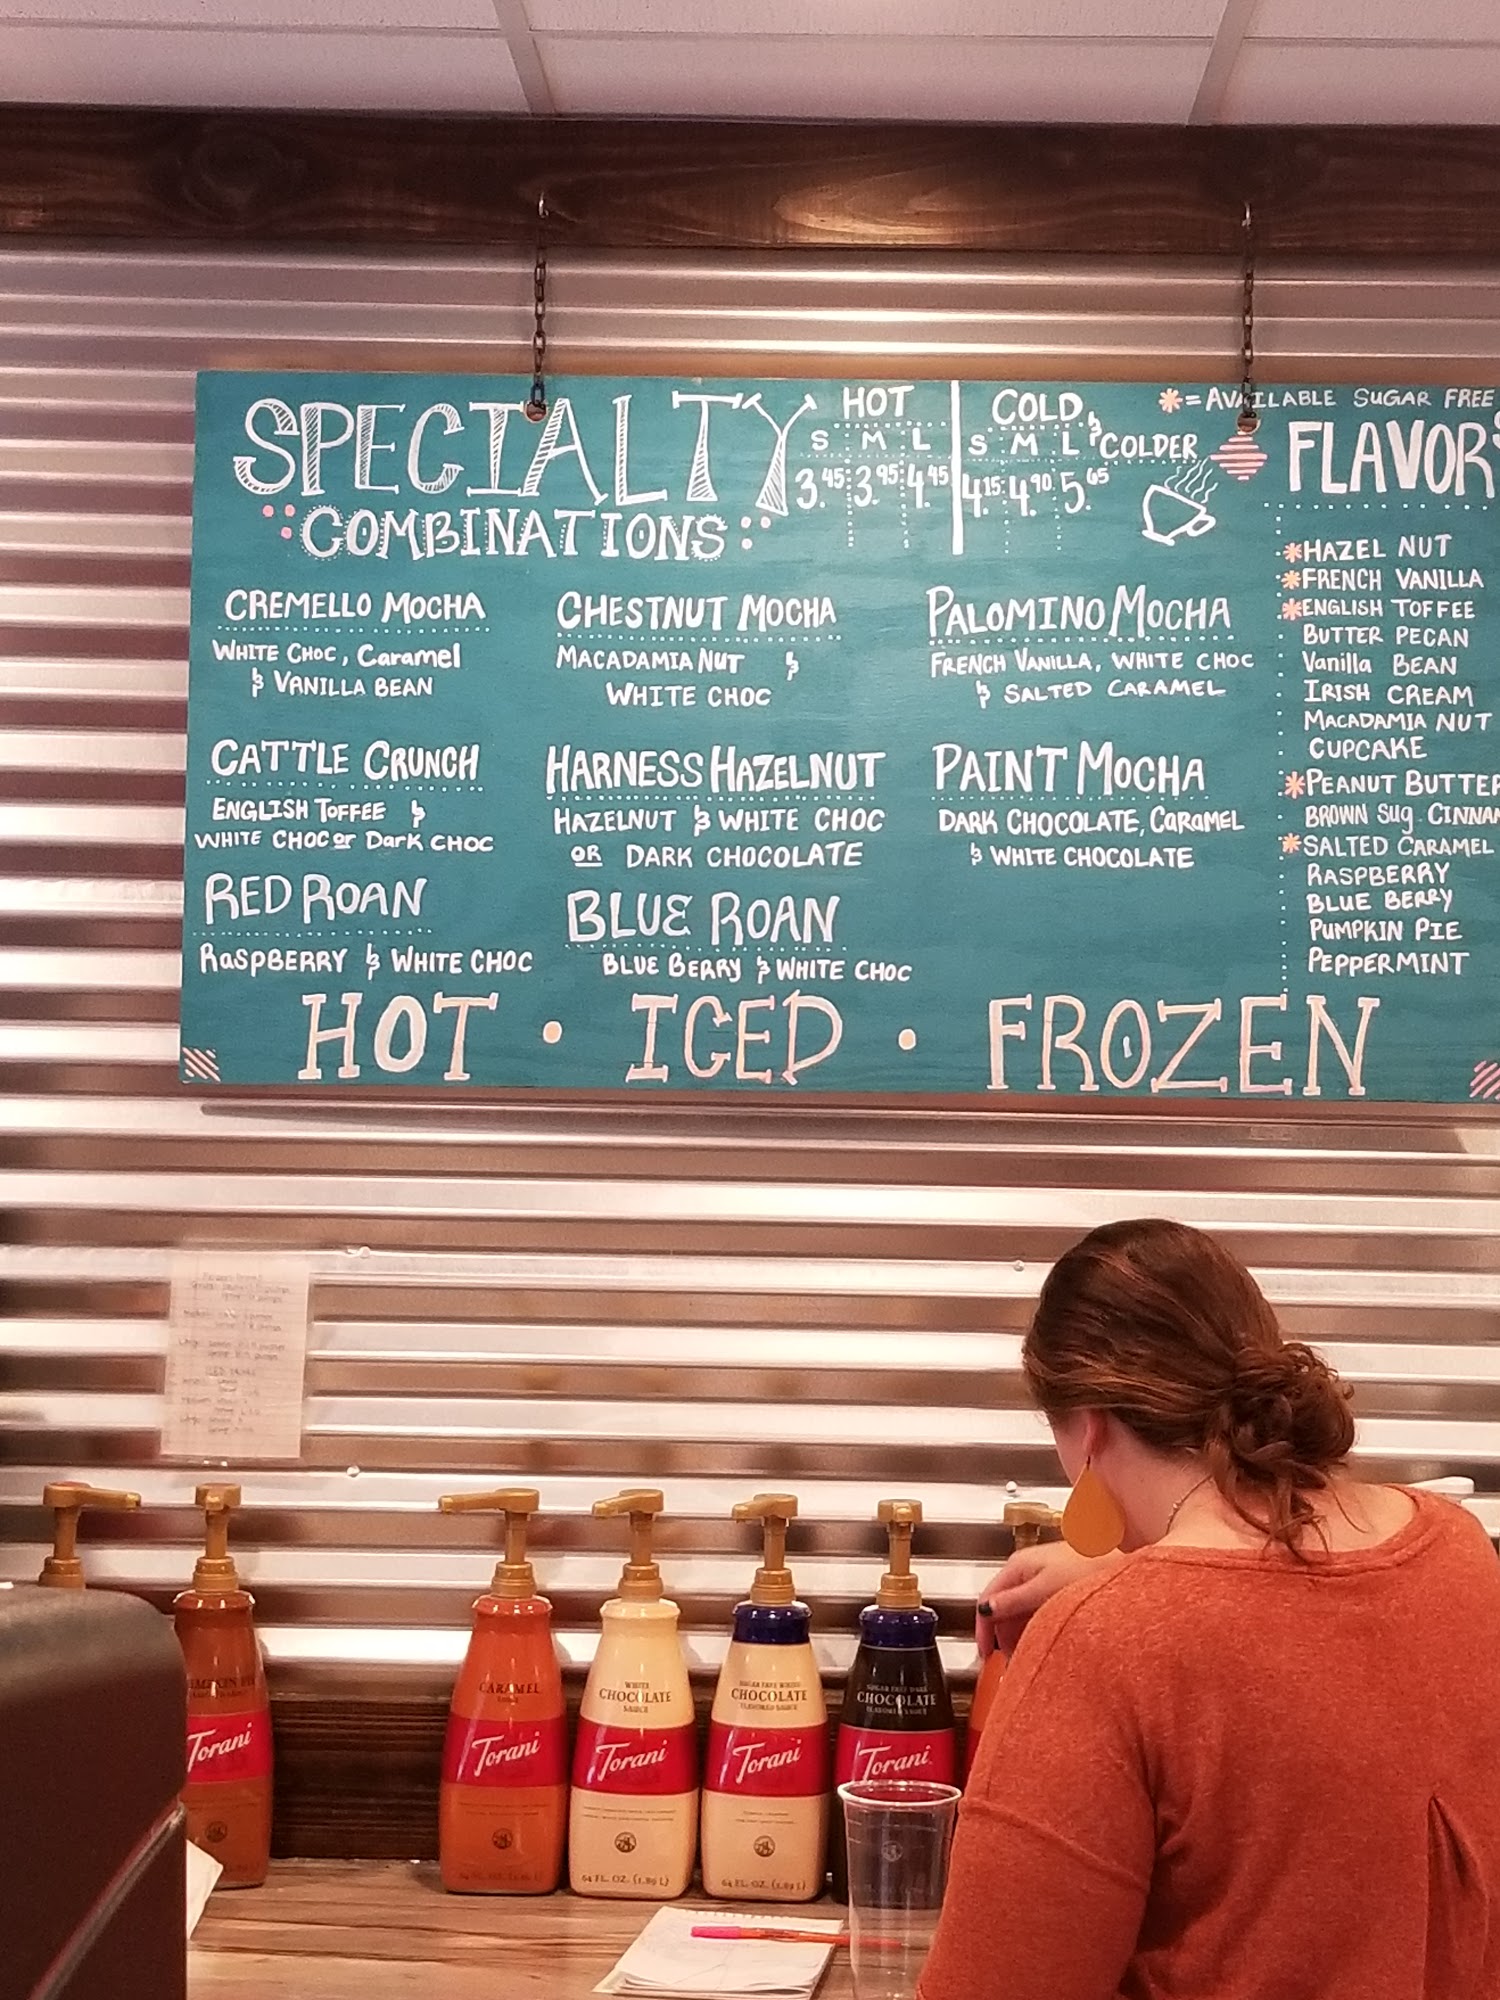 SPECIALTY
COMBINATIONS
HOT
S M L
3.45 3.95 4.45
COLD &
S M L COLDER
4.15 4.90 5.65
* = AVAILABLE SUGAR FREE
FLAVORS
CREMELLO MOCHA
WHITE CHOC, Caramel
& VANILLA BEAN
CHESTNUT MOCHA
MACADAMIA NUT &
WHITE CHOC
PALOMINO MOCHA
FRENCH VANILLA, WHITE CHOC
& SALTED CARAMEL
CATTLE CRUNCH
ENGLISH TOFFEE &
WHITE CHOC or Dark CHOC
HARNESS HAZELNUT
HAZELNUT & WHITE CHOC
OR DARK CHOCOLATE
PAINT MOCHA
DARK CHOCOLATE, CaRaMEL
& WHITE CHOCOLATE
RED ROAN
RaSPBERRY & WHITE CHOC
BLUE ROAN
BLUE BERRY & WHITE CHOC
*HAZEL NUT
*FRENCH VANILLA
*ENGLISH TOFFEE
BUTTER PECAN
Vanilla BEAN
IRISH CREAM
MACADAMIA NUT
CUPCAKE
*PEANUT BUTTER
BROWN Sug. CINNAM
*SALTED CARAMEL
RASPBERRY
BLUE BERRY
PUMPKIN PIE
PEPPERMINT
HOT • ICED • FROZEN
Torani
CARAMEL
SAUCE
Torani
64 FL. OZ. (1.89 L)
WHITE
CHOCOLATE
SAUCE
Torani
64 FL. OZ. (1.89 L)
SUGAR FREE WHITE
CHOCOLATE
FLAVORED SAUCE
Torani
64 FL. OZ. (1.89 L)
SUGAR FREE DARK
CHOCOLATE
FLAVORED SAUCE
Torani